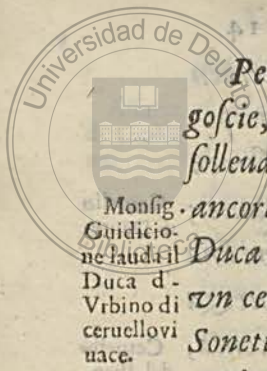 Universidad de Deusto
Biblioteca
Pe
goſcie,
ſolleua
ancor
Duca
vn ce
Sonett
Monſig.
Guidicio-
ne lauda il
Duca d-
Vrbino di
ceruellovi
uace.